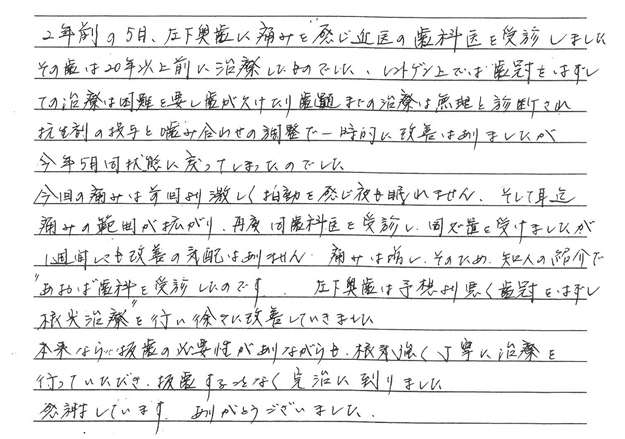 2年前の5月、左下奥歯に痛みを感じ近医の歯科医を受診しました
その歯は20年以上前に治療したものでした、レントゲン上では歯冠をはずし
ての治療は困難を要し歯が欠けたり歯髄までの治療は無理と診断され
抗生剤の投与と噛み合わせの調整で一時的に改善はありましたが
今年5月同状態に戻ってしまったのでした
今回の痛みは前回より激しく拍動を感じ夜も眠れません、そして耳迄
痛みの範囲が拡がり、再度同歯科医を受診し、同処置を受けましたが
1週間しても改善の気配はありません 痛みは増し、そのため、知人の紹介で
"あおば歯科"を受診したのです 、左下奥歯は予想より悪く歯冠をはずし
根尖治療"を行い徐々に改善していきました
本来なら抜歯の必要性がありながらも、根気強く丁寧に治療を
行っていただき、抜歯することなく完治に到りました
感謝しています ありがとうございました.